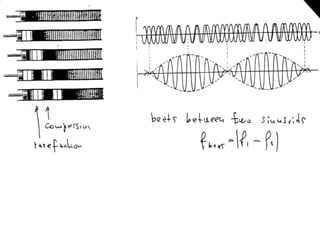 compression
rarefaction
beats between two sinusoids
f beat = |f1 - f2|